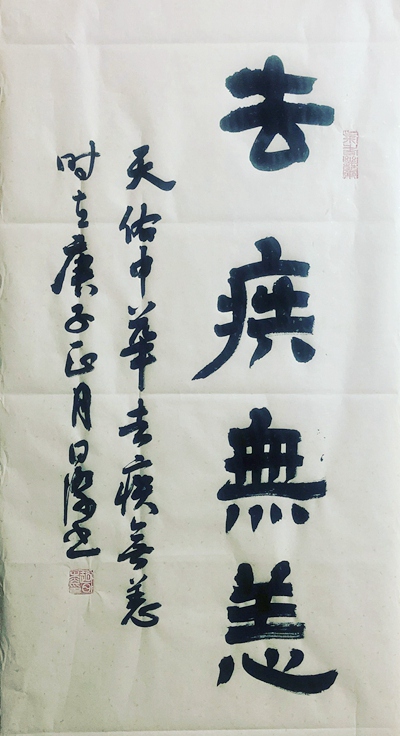 去疾無恙
天佑中華去疾無恙
时在庚子正月